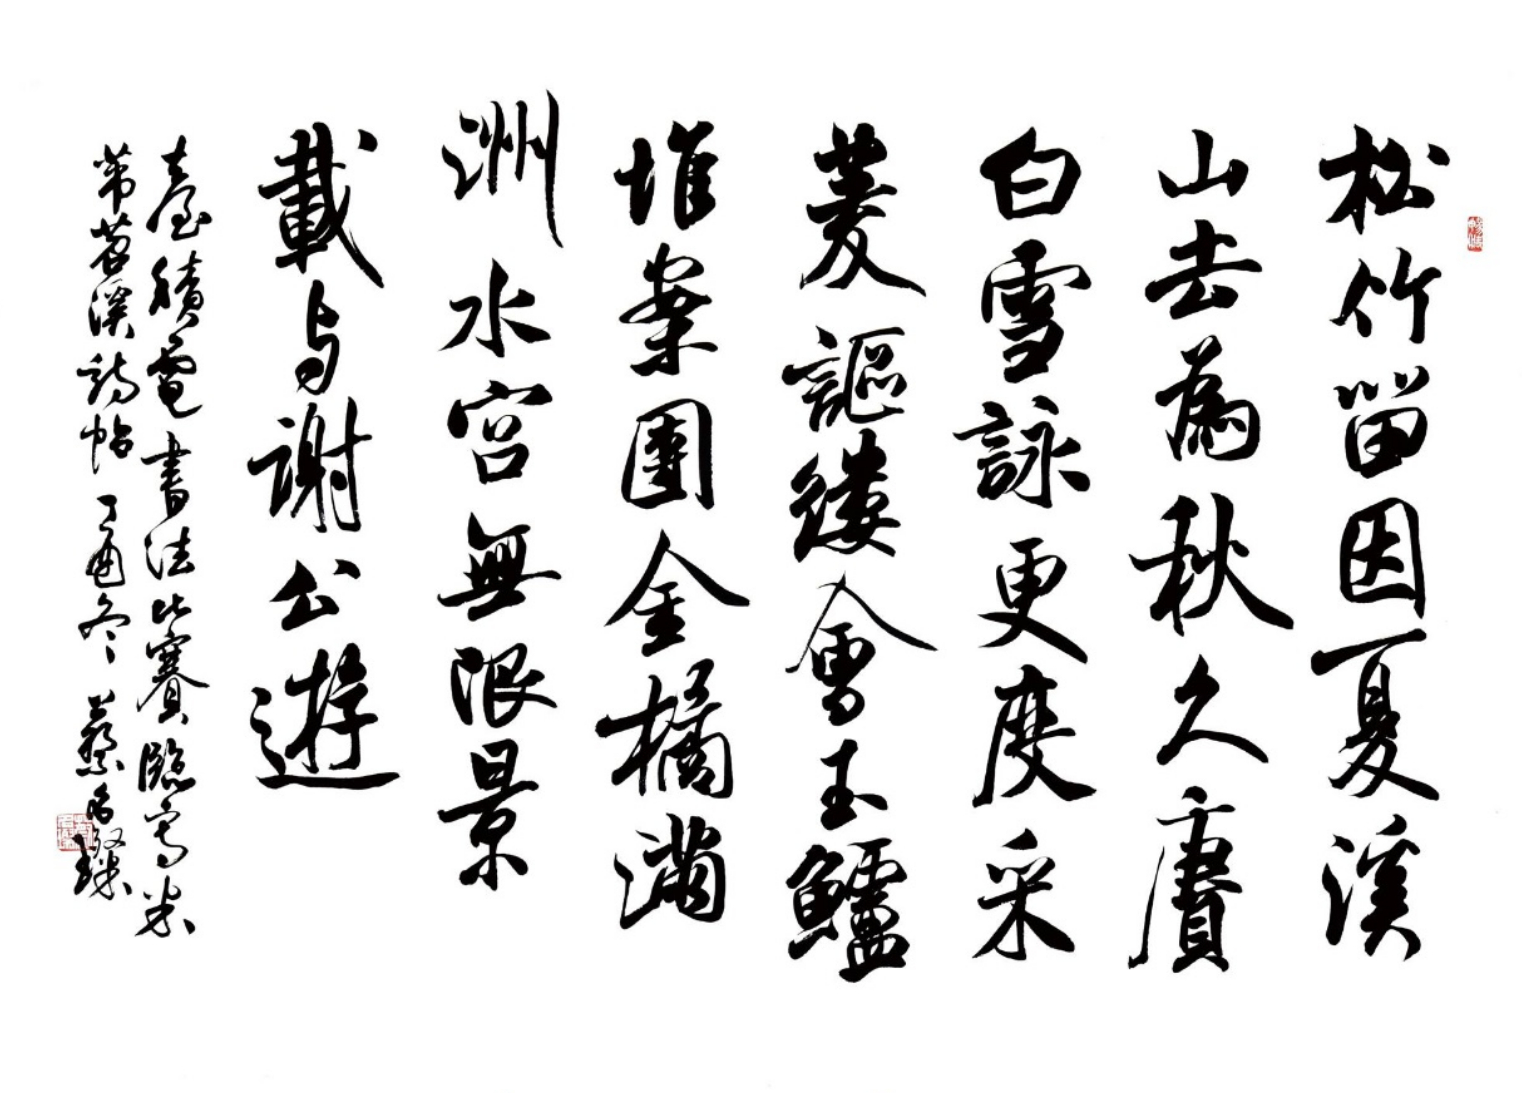 松竹留因夏溪
山去為秋久賡
白雪詠更度采
菱謳縷會玉鱸
堆案團金橘滿
洲水宮無限景
載与謝公遊
臺積電書法比賽臨寫米
芾苕溪詩帖丁酉冬蔡名璨